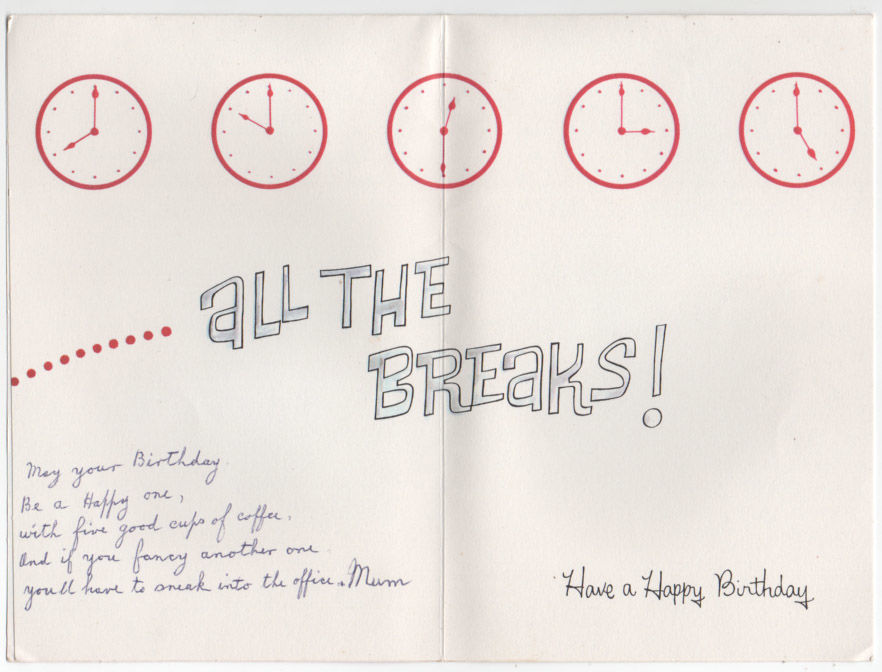 aLL THE
BREaKS!
May your Birthday.
Be a Happy one,
with five good cups of coffee.
And if you fancy another one
you'll have to sneak into the office. Mum
Have a Happy Birthday